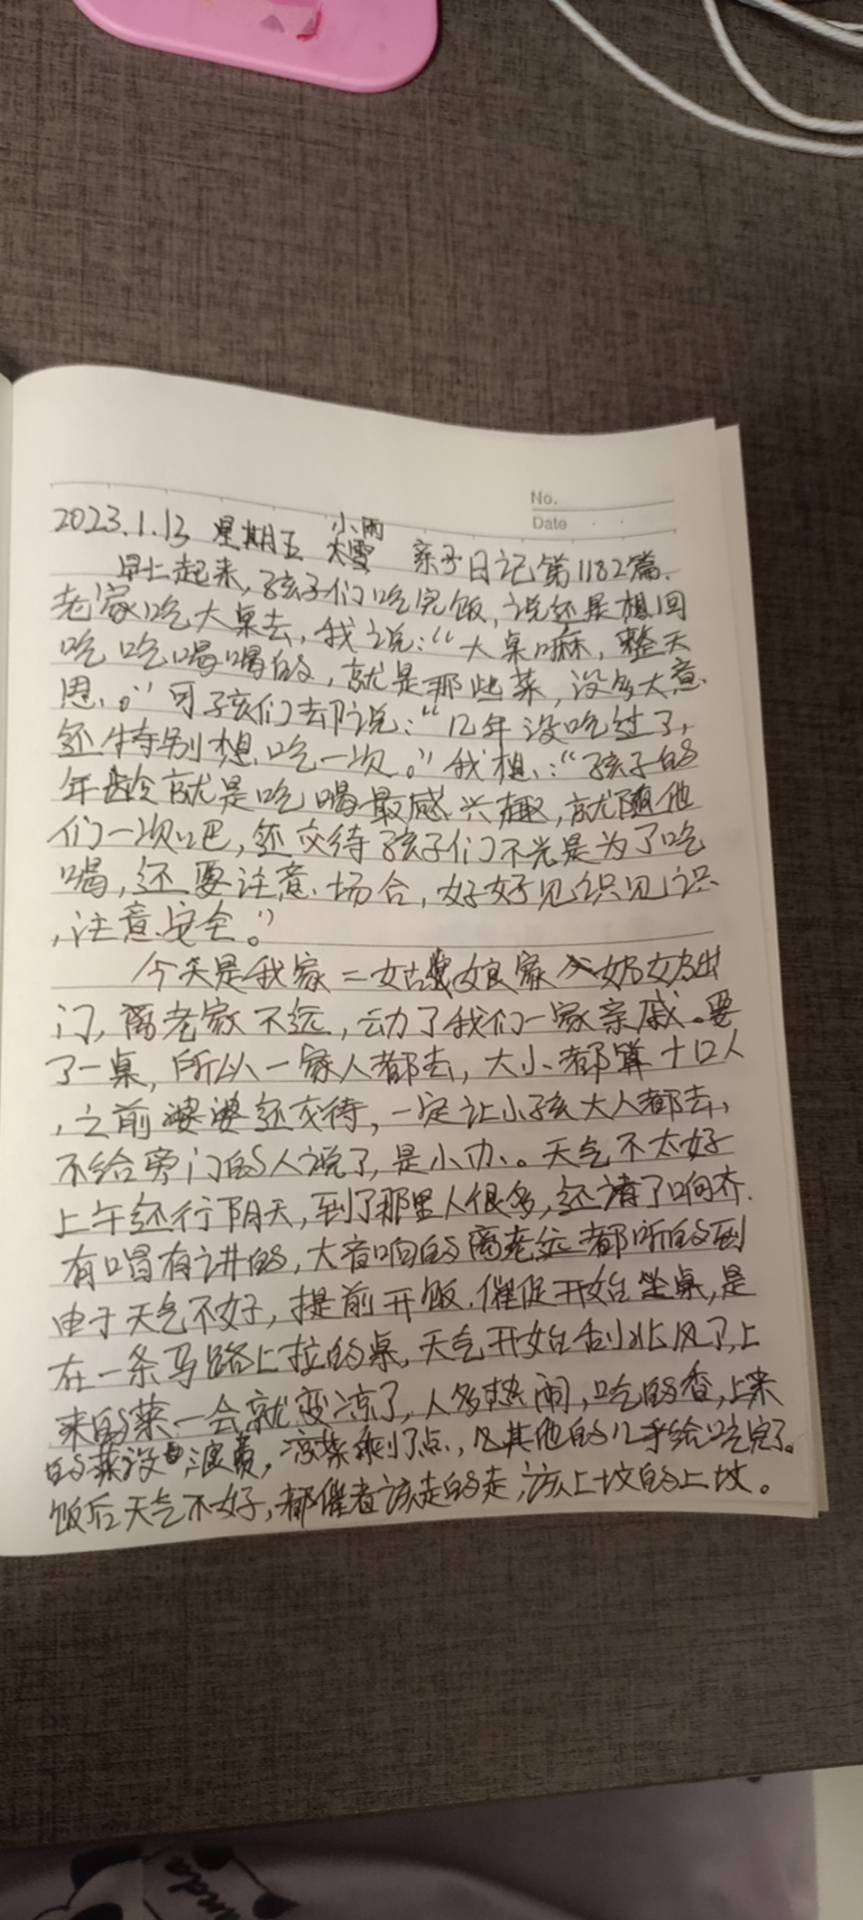 No.
Date
2023.1.13 星期五 小雨大雪 亲子日记第1182篇.
早上起来,孩子们吃完饭,说还是想回
老家吃大桌去,我说:“大桌嘛,整天
吃吃喝喝的,就是那些菜,没多大意
思。”可孩们却说:“几年没吃过了,
还特别想吃一次。”我想:“孩子的
年龄就是吃喝最感兴趣,就随他
们一次吧,还交待孩子们不光是为了吃
喝,还要注意场合,好好见识见识
,注意安全。”
今天是我家二姑娘家奶奶出
门,离老家不远,动了我们一家亲戚。要
了一桌,所以一家人都去,大小都算十口人
,之前婆婆还交待,一定让小孩大人都去,
不给旁门的人说了,是小办。天气不太好
上午还行阴天,到了那里人很多,还请了响齐.
有唱有讲的,大音响的离老远都听的到
由于天气不好,提前开饭.催促开始坐桌,是
在一条马路上拉的桌,天气开始刮北风了,上
来的菜一会就变凉了,人多热闹,吃的香,上来
的菜没浪费,凉菜剩了点,其他的几乎给吃完了。
饭后天气不好,都催着该走的走,该上坟的上坟。